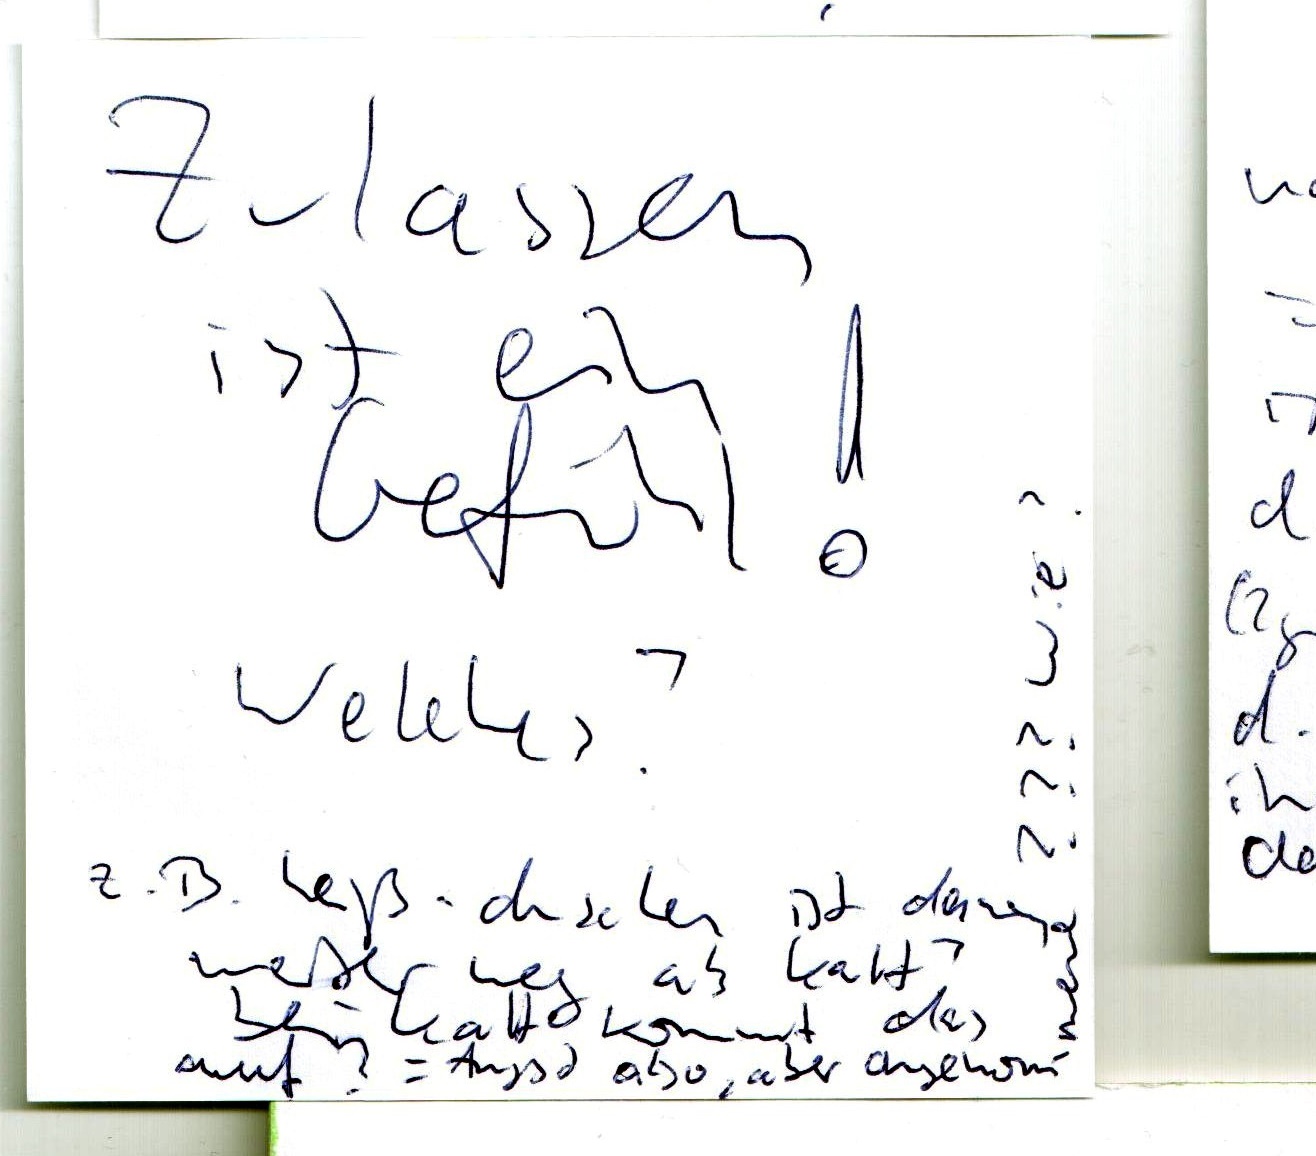 Zulassen
ist ein
Gefül !
Welches?
z.B. heiß-duschen ist
weiter weg als kalt?
bei kalt kommt das
auf? = Angst also, aber angenom
mene
??? wie?